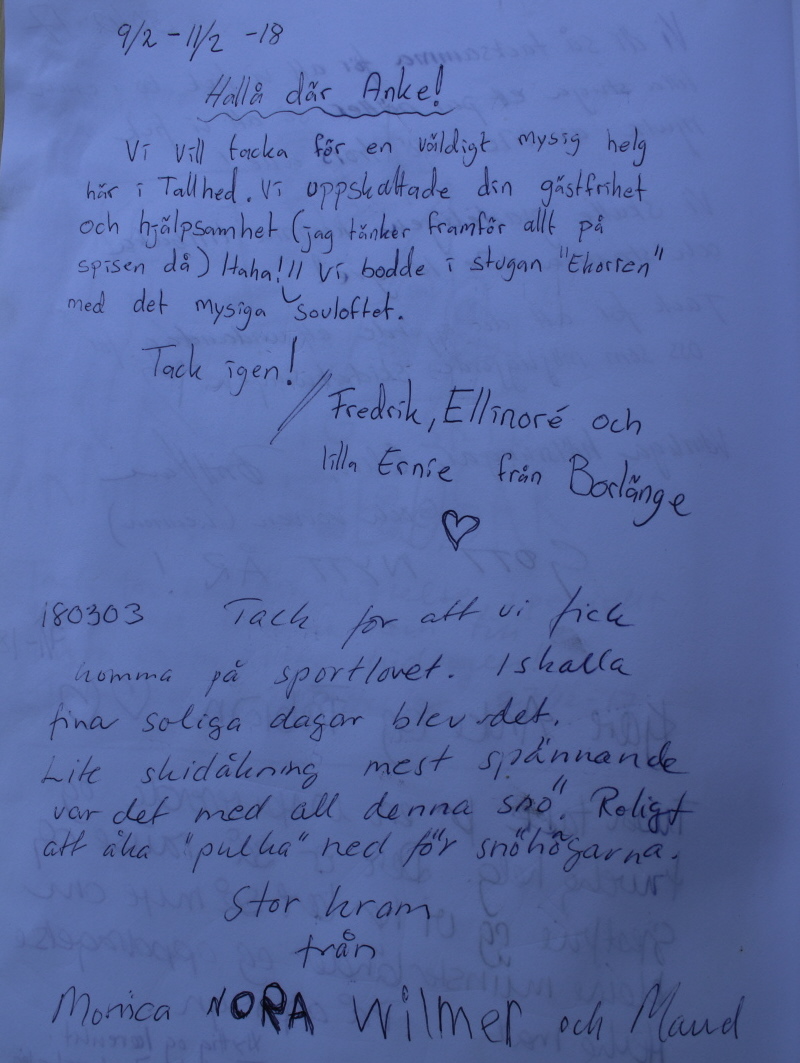 9/2 - 11/2 -18
Hallå där Anke!
Vi vill tacka för en väldigt mysig helg
här i Tallhed. Vi uppskattade din gästfrihet
och hjälpsamhet (jag tänker framför allt på
spisen då) Haha! Vi bodde i stugan "Ekorren"
med det mysiga sovloftet.
Tack igen!
/ Fredrik, Ellinoré och
lilla Ernie från Borlänge
♡
180303 Tack för att vi fick
komma på sportlovet. Iskalla
fina soliga dagar blev det.
Lite skidåkning mest spännande
var det med all denna snö". Roligt
att åka "pulka" ned för snöhögarna.
Stor kram
från
Monica NORA Wilmer och Maud